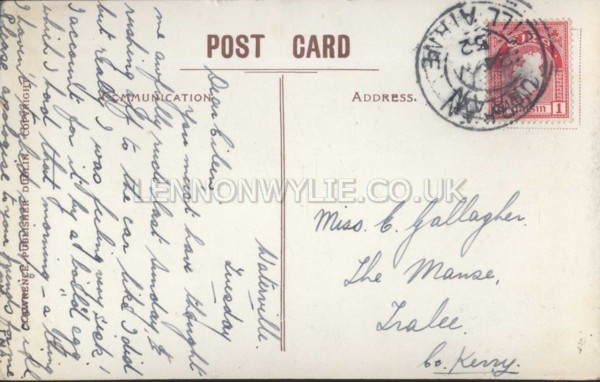 POST CARD
COMMUNICATION.
ADDRESS.
LAWRENCE, PUBLISHER, DUBLIN. COPYRIGHT
Waterville.
Tuesday
Dear Eileen
You must have thought
me awfully rude last Sunday to
rushing to the car like I did
but really I was feeling very sick!
I account for it by a boiled egg
which I had that morning - a thing
I haven't
Please apologise to your for me
Miss. E. Gallagher.
The Manse,
Tralee.
Co. Kerry.
1
LENNONWYLIE.CO.UK